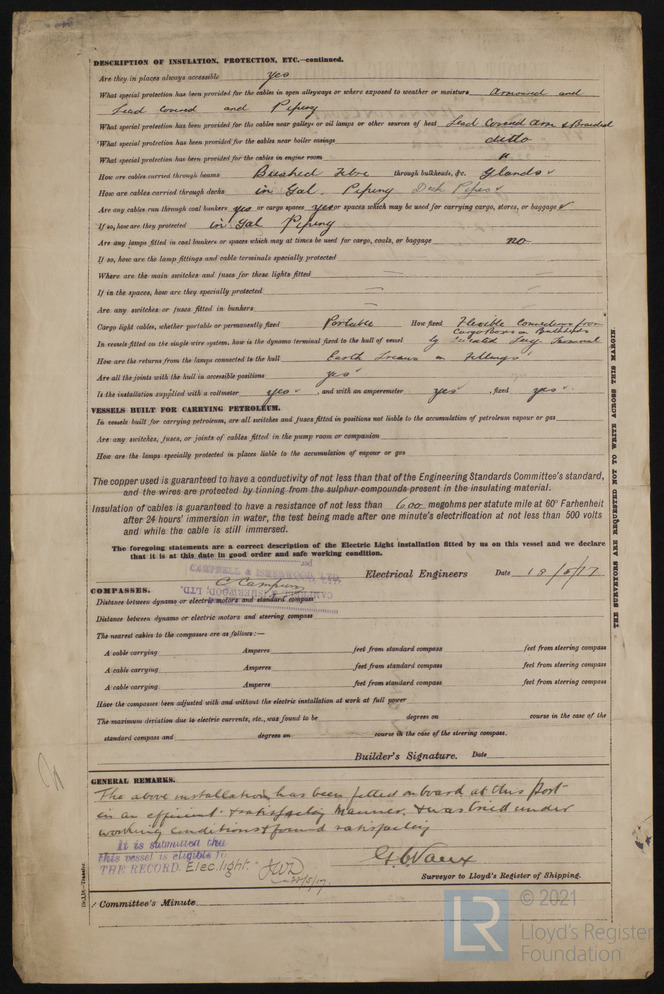 DESCRIPTION OF INSULATION, PROTECTION, ETC.—continued.
Are they in places always accessible yes
What special protection has been provided for the cables in open alleyways or where exposed to weather or moisture Armoured and
Lead Covered and Piping
What special protection has been provided for the cables near galley or oil lamps or other sources of heat Lead Covered Arm & Braided
What special protection has been provided for the cables near boiler casings ditto
What special protection has been provided for the cables in engine room "
How are cables carried through beams Bushed Fibre through bulkheads, &c. Glands ✓
How are cables carried through decks in Gal. Piping Deck Pipes ✓
Are any cables run through coal bunkers yes or cargo spaces yes or spaces which may be used for carrying cargo, stores, or baggage ✓
If so, how are they protected in Gal Piping
Are any lamps fitted in coal bunkers or spaces which may at times be used for cargo, coals, or baggage no
If so, how are the lamp fittings and cable terminals specially protected
Where are the main switches and fuses for these lights fitted —
If in the spaces, how are they specially protected —
Are any switches or fuses fitted in bunkers —
Cargo light cables, whether portable or permanently fixed Portable How fixed Flexible Connections from
Cargo Boxes on Bulkheads
In vessels fitted on the single wire system, how is the dynamo terminal fixed to the hull of vessel by Lug Terminal
How are the returns from the lamps connected to the hull Earth Screws on Fittings
Are all the joints with the hull in accessible positions yes ✓
Is the installation supplied with a voltmeter yes ✓, and with an amperemeter yes ✓, fixed yes ✓
VESSELS BUILT FOR CARRYING PETROLEUM.
In vessels built for carrying petroleum, are all switches and fuses fitted in positions not liable to the accumulation of petroleum vapour or gas
Are any switches, fuses, or joints of cables fitted in the pump room or companion
How are the lamps specially protected in places liable to the accumulation of vapour or gas
The copper used is guaranteed to have a conductivity of not less than that of the Engineering Standards Committee's standard,
and the wires are protected by tinning from the sulphur compounds present in the insulating material.
Insulation of cables is guaranteed to have a resistance of not less than 600 megohms per statute mile at 60° Farhenheit
after 24 hours' immersion in water, the test being made after one minute's electrification at not less than 500 volts
and while the cable is still immersed.
The foregoing statements are a correct description of the Electric Light installation fitted by us on this vessel and we declare
that it is at this date in good order and safe working condition.
CAMPBELL & ISHERWOOD, LTD.
Electrical Engineers Date 18/5/17
COMPASSES.
Distance between dynamo or electric motors and standard compass
Distance between dynamo or electric motors and steering compass
The nearest cables to the compasses are as follows:—
A cable carrying Amperes feet from standard compass feet from steering compass
A cable carrying Amperes feet from standard compass feet from steering compass
A cable carrying Amperes feet from standard compass feet from steering compass
Have the compasses been adjusted with and without the electric installation at work at full power
The maximum deviation due to electric currents, etc., was found to be degrees on course in the case of the
standard compass and degrees on course in the case of the steering compass.
Builder's Signature. Date
GENERAL REMARKS.
The above installation has been fitted on board at this Port
in an efficient & satisfactory manner, & was tried under
working conditions & found satisfactory
It is submitted that
this vessel is eligible to
THE RECORD. Elec. light. JWD
28/5/17.
G. C. Vaux
Surveyor to Lloyd's Register of Shipping.
Committee's Minute
THE SURVEYORS ARE REQUESTED NOT TO WRITE ACROSS THIS MARGIN.
© 2021
LR
Lloyd's Register
Foundation